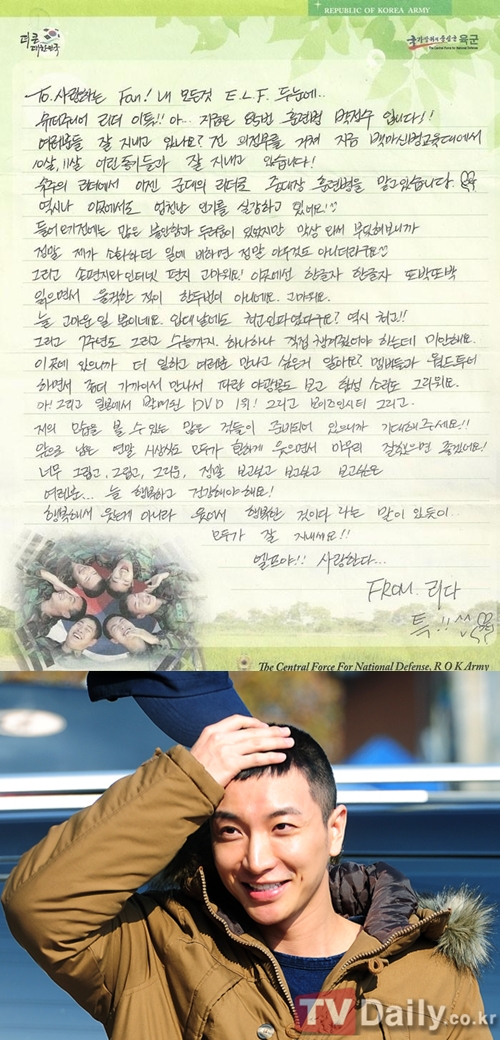 REPUBLIC OF KOREA ARMY
대한민국
육군
The Central Force for National Defense
To. 사랑하는 Fan! 내 모든것 E.L.F. 두눈에...
슈퍼주니어 리더 이특!! 아... 지금은 훈련병 박정수 입니다!
여러분들 잘 지내고 있나요? 전 의정부를 거쳐 지금 백마신병교육대에서
10살, 11살 어린 동이들과 잘 지내고 있습니다!
슈주의 리더에서 이젠 군대의 리더로 중대장 훈련병을 맡고있습니다
역시나 이곳에서도 엄청난 인기를 실감하고 있네요!!
들어오기전에는 많은 불안함과 두려움이 있었지만 막상 와서 부딪혀보니까
정말 제가 소화하던 일에 비하면 정말 아무것도 아니더라구요
그리고 손편지와 인터넷 편지 고마워요! 이곳에선 한글자 한글자 또박또박
읽으면서 울컥한 적이 한두번이 아니네요. 고마워요.
늘 고마운 일 뿐이네요. 입대날에도 최고인파였다구요? 역시 최고!!
그리고 7주년도 그리고 수능까지. 하나하나 직접 챙겨줬어야 하는데 미안해요.
이곳에 있으니까 더 일하고 여러분 만나고 싶은거 알아요? 멤버들과 월드투어
하면서 좀더 가까이서 만나서 파란 야광봉도 보고 함성 소리도 그리워요.
아! 그리고 일본에서 발매된 DVD 1위! 그리고 보이즈인시티 그리고..
저의 모습을 볼 수 있는 많은 것들이 준비되어 있으니까 기대해주세요!!
앞으로 남은 연말 시상식도 모두가 함께 웃으면서 마무리 잘했으면 좋겠네요!
너무 그립고, 그립고, 그리운, 정말 보고싶고 보고싶고 보고싶은
여러분... 늘 행복하고 건강해야해요!
행복해서 웃는게 아니라 웃어서 행복한 것이다 라는 말이 있듯이..
모두가 잘 지내세요!!
엘프야!! 사랑한다...
FROM. 리다
특!!
The Central Force For National Defense, R O K Army
TVDaily.co.kr